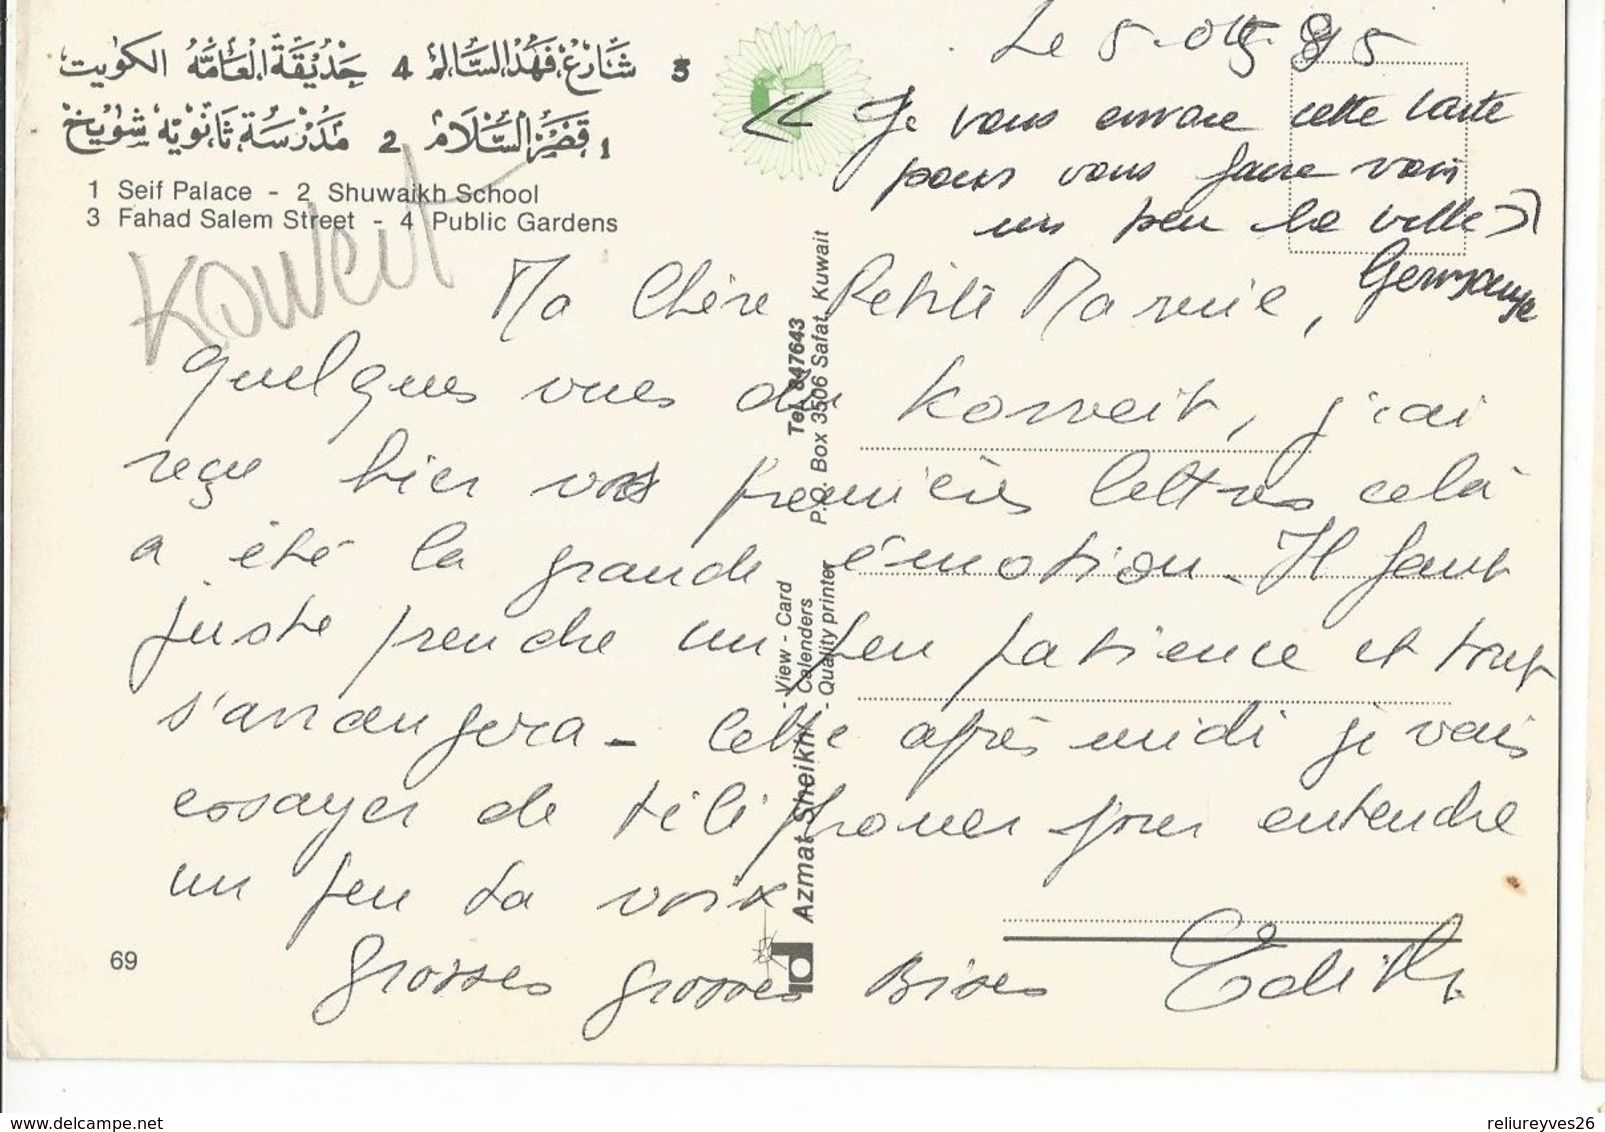 3 شَارِعْ فَهْدُ السَّالِمْ 4 حَدِيْقَةُ الْعَامَّهْ الكويت
1 قَصْرُ السَّلَامْ 2 مَدْرَسَةْ ثَانَوِيَّهْ شويخ
1 Seif Palace - 2 Shuwaikh School
3 Fahad Salem Street - 4 Public Gardens
Koweit
Le 5. 85
« Je vous envoie cette carte
pour vous faire voir
un peu la ville »
Germaine
Ma Chère Petite Mamie,
quelques vues du Koweit, j'ai
reçu hier vos premières lettres celà
a été la grande émotion. Il faut
juste prendre un peu patience et tout
s'arrangera - Cette après midi je vais
essayer de téléphoner pour entendre
un peu ta voix
Grosses grosses Bises Edith
69
Azmat Sheikh
- View - Card
- Calenders
- Quality printer
Tel. 847643
P.O. Box 3506 Safat, Kuwait
delcampe.net
reliureyves26